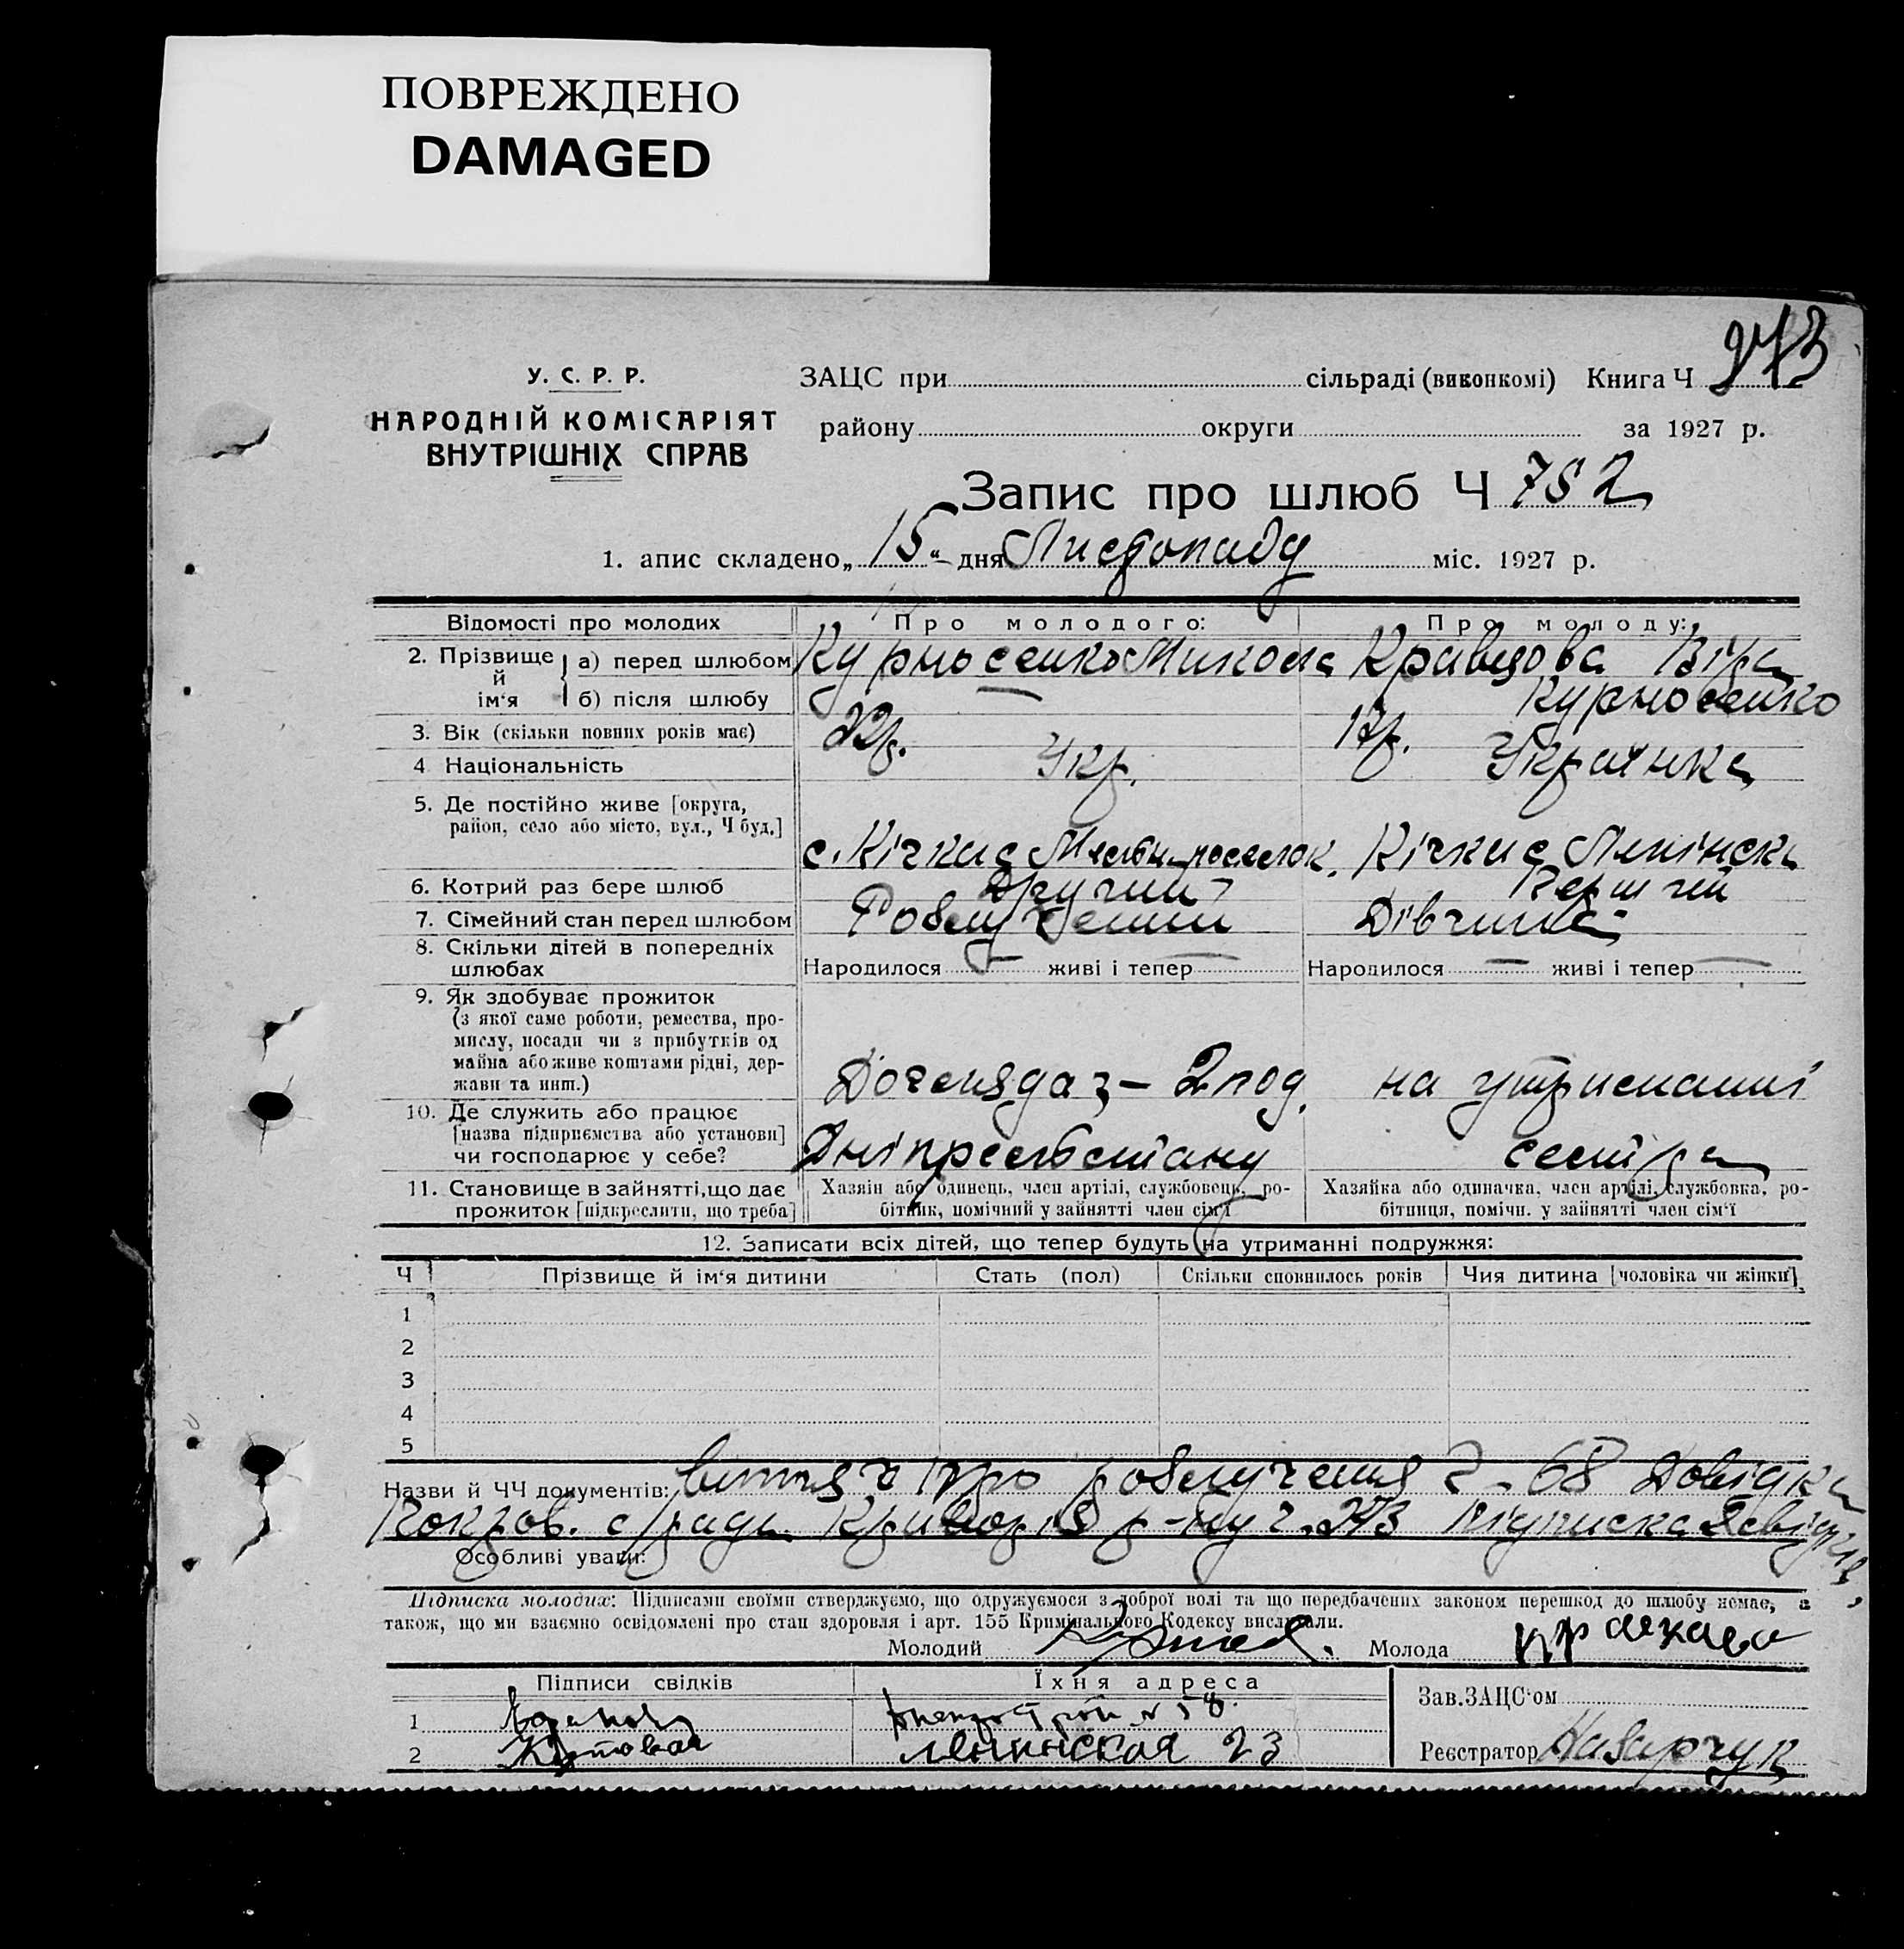 ПОВРЕЖДЕНО
DAMAGED
273
У. С. Р. Р.
НАРОДНІЙ КОМІСАРІЯТ
ВНУТРІШНІХ СПРАВ
ЗАЦС при сільраді (виконкомі) Книга Ч
району округи за 1927 р.
Запис про шлюб Ч 752
1. апис складено „15“ дня Листопаду міс. 1927 р.
Відомості про молодих Про молодого: Про молоду:
2. Прізвище й ім‘я а) перед шлюбом Курносенко Микола Кравцова Віра
б) після шлюбу Курносенко
3. Вік (скільки повних років має) 22р. 17р.
4 Національність Укр. Українка
5. Де постійно живе [округа,
район, село або місто, вул., Ч буд.]
с. Кічкас Кічкас
6. Котрий раз бере шлюб Другий Перший
7. Сімейний стан перед шлюбом Розлучений Дівчина
8. Скільки дітей в попередніх
шлюбах Народилося — живі і тепер — Народилося — живі і тепер —
9. Як здобуває прожиток
(з якої саме роботи, ремества, про-
мислу, посади чи з прибутків од
майна або живе коштами рідні, дер-
жави та инш.)
Доглядач – 2 под. на утриманні
10. Де служить або працює
[назва підприємства або установи]
чи господарює у себе?
сестри
11. Становище в зайнятті, що дає
прожиток [підкреслити, що треба]
Хазяін або одинець, член артілі, службовець, ро-
бітник, помічний у зайнятті член сім‘ї
Хазяйка або одиначка, член артілі, службовка, ро-
бітниця, помічн. у зайнятті член сім‘ї
12. Записати всіх дітей, що тепер будуть на утриманні подружжя:
Ч Прізвище й ім‘я дитини Стать (пол) Скільки сповнилось років Чия дитина [чоловіка чи жінки]
1
2
3
4
5
Назви й ЧЧ документів: витяг про розлучення ч – 68 Довідка
Покров. с/ради р-ну ч. 273 Підписка
Особливі уваги:
Підписка молодих: Підписами своїми стверджуємо, що одружуємося з доброї волі та що передбачених законом перешкод до шлюбу немає, а
також, що ми взаємно освідомлені про стан здоровля і арт. 155 Кримінального Кодексу вислухали.
Молодий Молода
Підписи свідків Їхня адреса
1 58
2 Ленинская 23
Зав. ЗАЦС‘ом
Реєстратор Назарчук